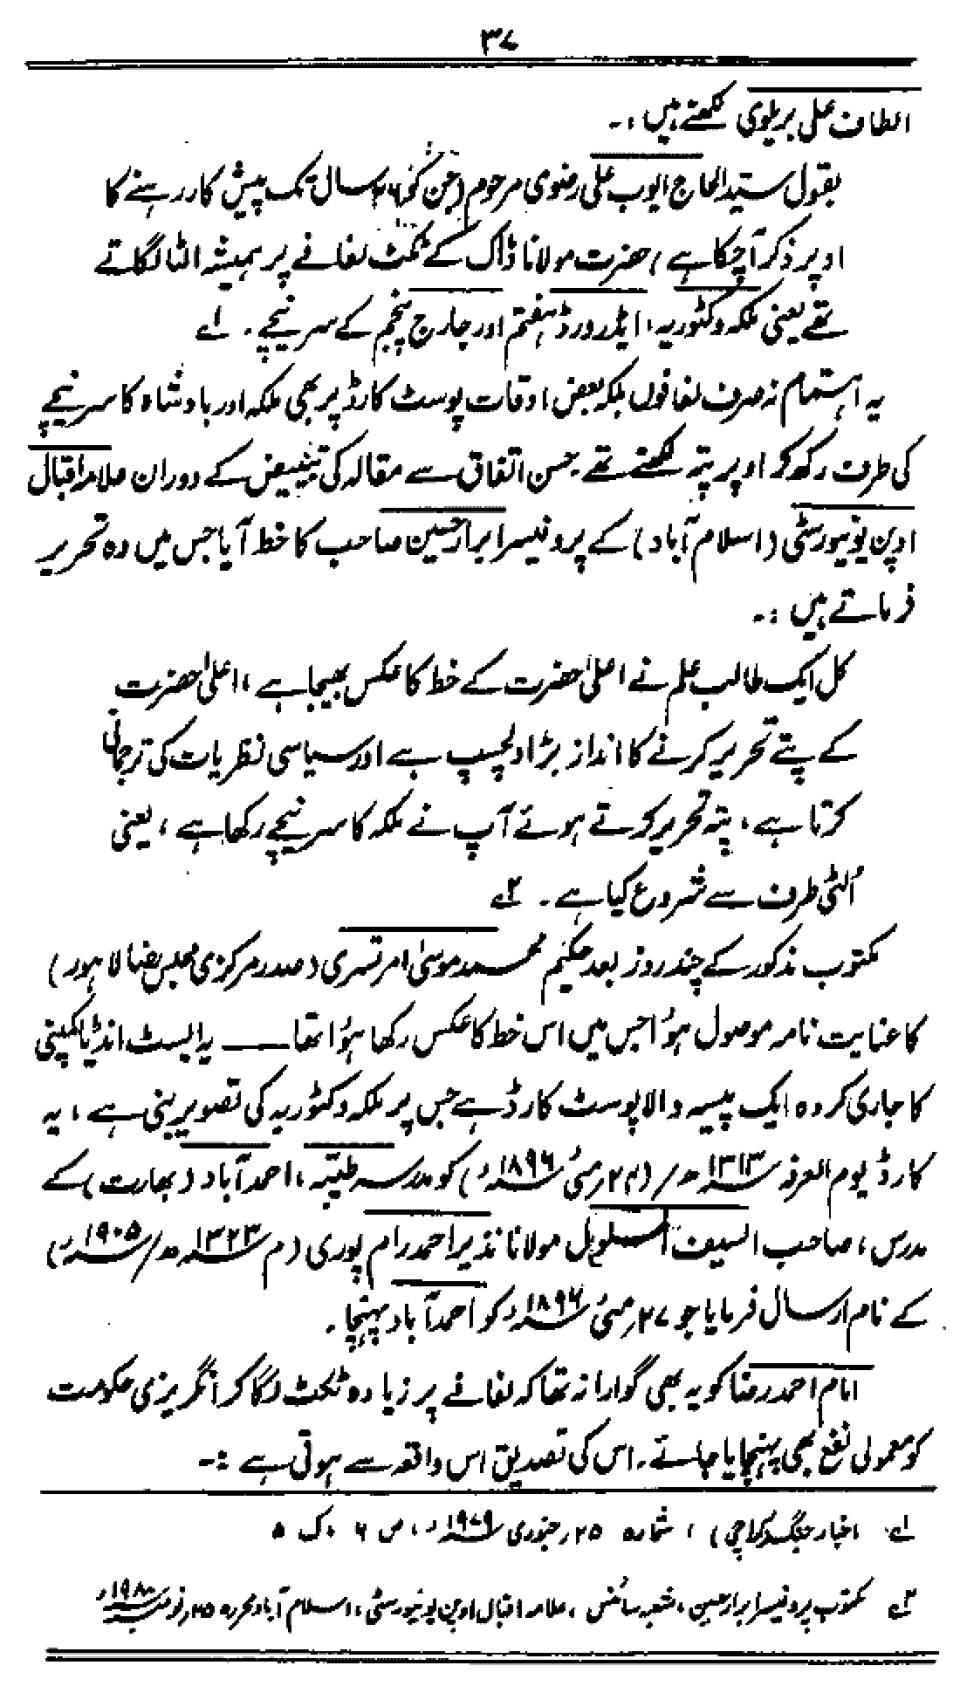 ۳۷
الطاف علی بریلوی لکھتے ہیں :۔
بقول سید الحاج ایوب علی رضوی مرحوم (جن کو ۲۶ سال تک پیش کار رہنے کا
اوپر ذکر آچکا ہے) حضرت مولانا ڈاک کے ٹکٹ لفافے پر ہمیشہ الٹا لگاتے
تھے یعنی ملکہ وکٹوریہ، ایڈورڈ ہفتم اور جارج پنجم کے سر نیچے ۔ ۱ے
یہ اہتمام نہ صرف لفافوں بلکہ بعض اوقات پوسٹ کارڈ پر بھی ملکہ اور بادشاہ کا سر نیچے
کی طرف رکھ کر اوپر پتہ لکھتے تھے ۔ حسن اتفاق سے مقالہ کی تبییض کے دوران علامہ اقبال
اوپن یونیورسٹی (اسلام آباد) کے پروفیسر ابرار حسین صاحب کا خط آیا جس میں وہ تحریر
فرماتے ہیں :۔
کل ایک طالب علم نے اعلیٰ حضرت کے خط کا عکس بھیجا ہے، اعلیٰ حضرت
کے پتے تحریر کرنے کا انداز بڑا دلچسپ ہے اور سیاسی نظریات کی ترجمانی
کرتا ہے، پتہ تحریر کرتے ہوئے آپ نے ملکہ کا سر نیچے رکھا ہے، یعنی
اُلٹی طرف سے شروع کیا ہے ۔ ۲ے
مکتوب مذکور کے چند روز بعد حکیم محمد موسیٰ امرتسری (صدر مرکزی مجلس رضا لاہور)
کا عنایت نامہ موصول ہُوا جس میں اس خط کا عکس رکھا ہُوا تھا —— یہ ایسٹ انڈیا کمپنی
کا جاری کردہ ایک پیسہ والا پوسٹ کارڈ ہے جس پر ملکہ وکٹوریہ کی تصویر بنی ہے، یہ
کارڈ یوم العرفہ ۱۳۱۳ھ/(۲۴؍مئی ۱۸۹۶ء) کو مدرسہ طیبہ، احمد آباد (بھارت) کے
مدرس، صاحب السیف المسلول مولانا نذیر احمد رام پوری (م ۱۳۲۳ھ/۱۹۰۵ء)
کے نام ارسال فرمایا جو ۲۷؍مئی ۱۸۹۶ء کو احمد آباد پہنچا۔
امام احمد رضا کو یہ بھی گوارا نہ تھا کہ لفافے پر زیادہ ٹکٹ لگا کر انگریزی حکومت
کو معمولی نفع بھی پہنچایا جائے ۔ اس کی تصدیق اس واقعہ سے ہوتی ہے :۔
۱ے اخبار جنگ (کراچی)، شمارہ ۲۵؍جنوری ۱۹۷۹ء، ص ۶، ک ۵
۲ے مکتوب پروفیسر ابرار حسین، شعبہ سائنس، علامہ اقبال اوپن یونیورسٹی، اسلام آباد محررہ ۲۵؍نومبر ۱۹۸۰ء